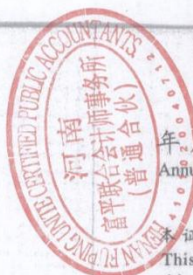 HENAN FUPING UNITE CERTIFIED PUBLIC ACCOUNTANTS
河南
富平联合会计师事务所
(普通合伙)
年
Annu
本证
This